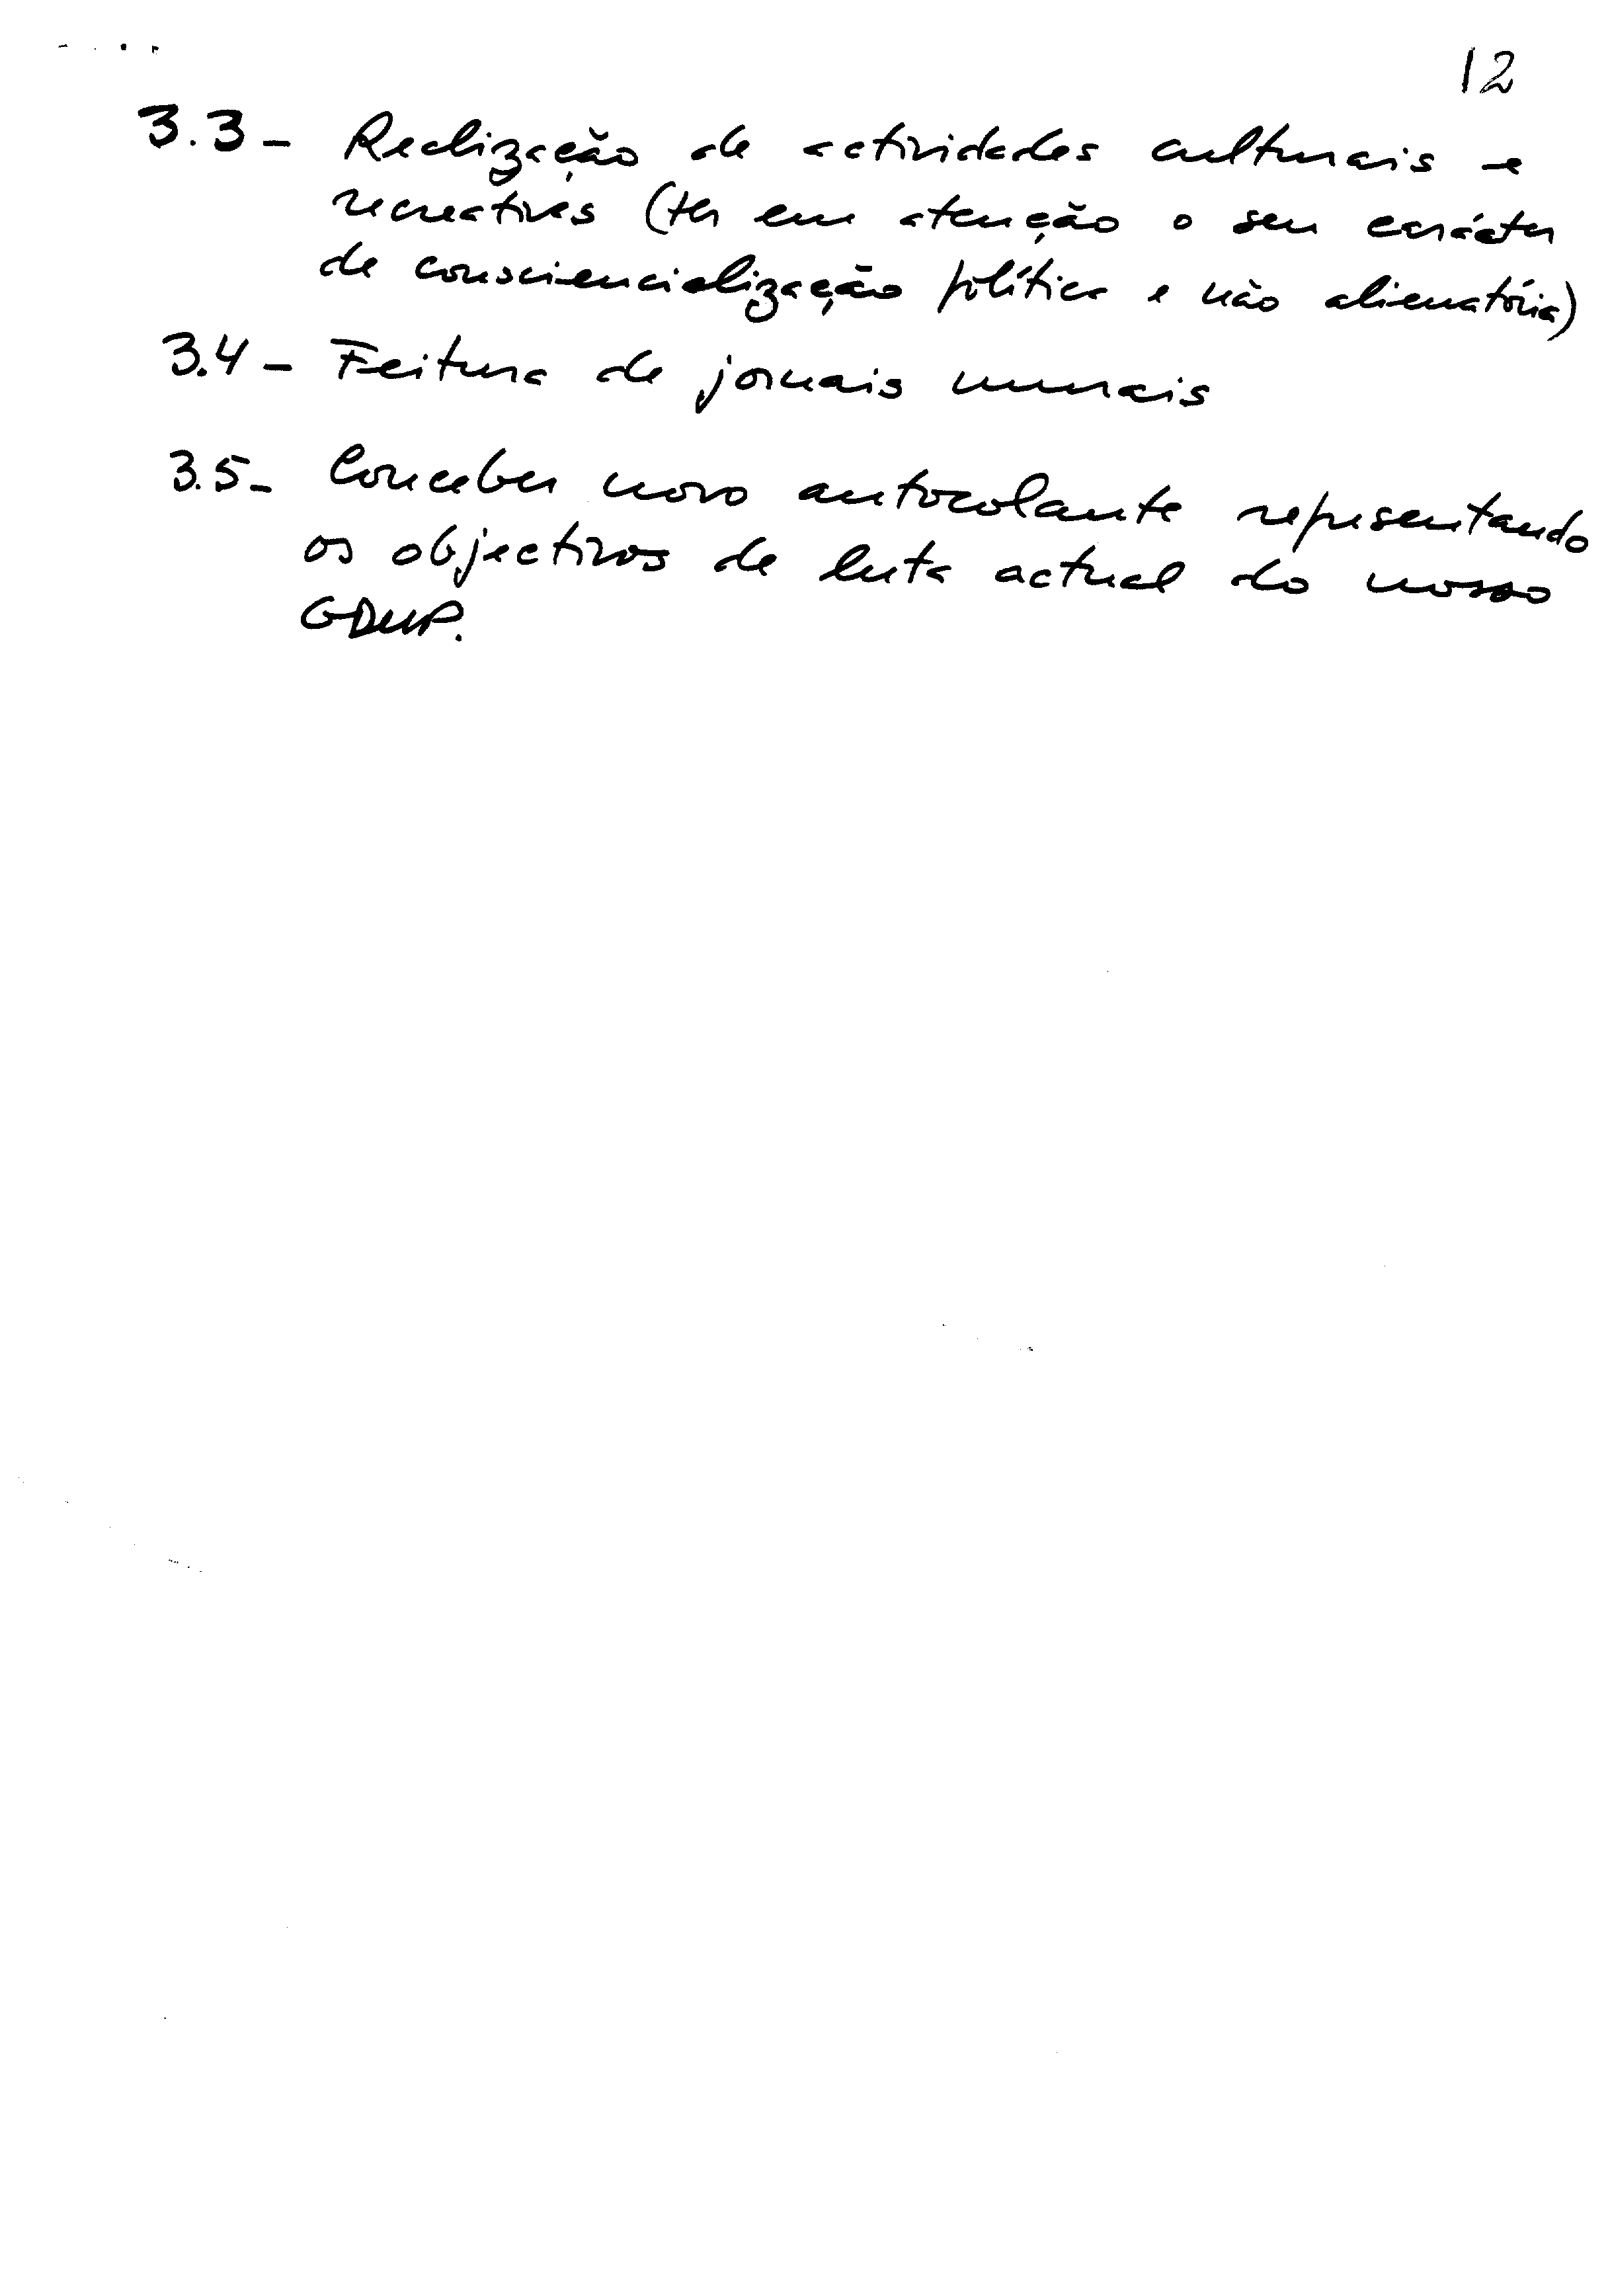 12
3.3 - Realização de actividades culturais e
recreativas (ter em atenção o seu carácter
de consciencialização política e não alienatória)
3.4 - Feitura de jornais murais
3.5 - Conceber novo autocolante representando
os objectivos de luta actual do nosso
GDUP.